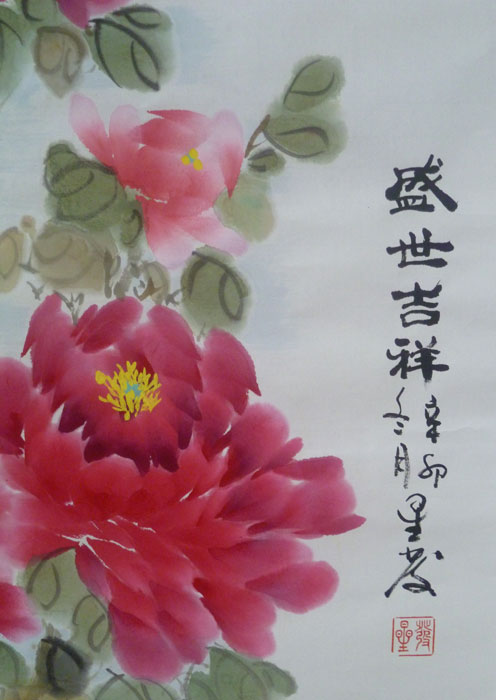 盛世吉祥
辛卯
冬月
星发
發星